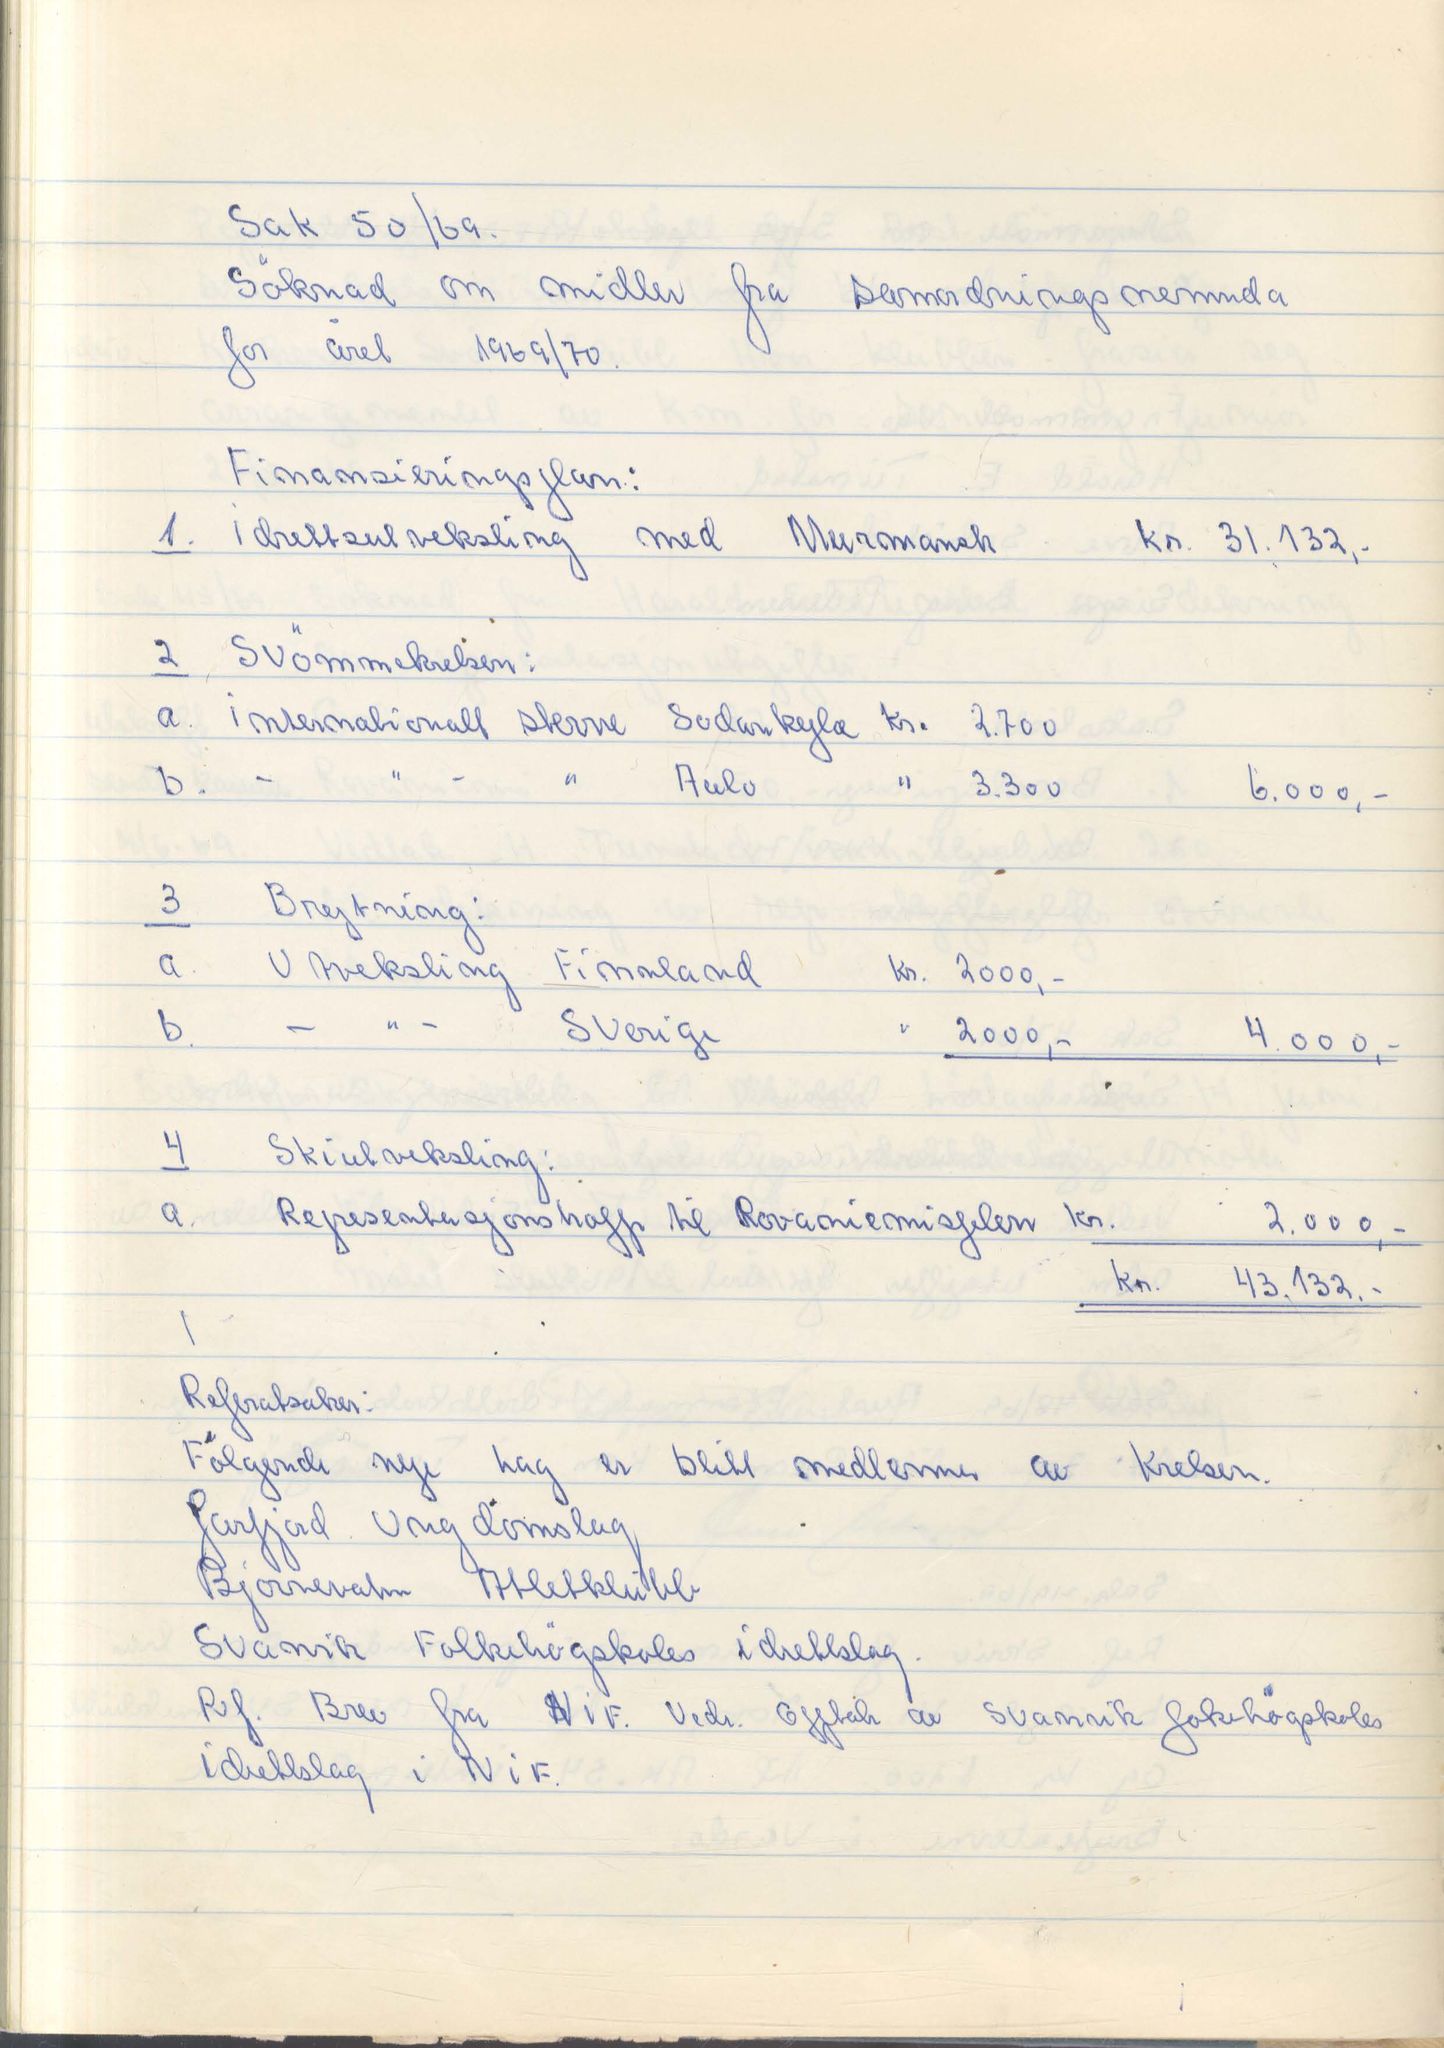 Sak 50/69.
Söknad om midler fra samordningsnemnda
for året 1969/70.
Finansieringsplan:
1. Idrettsutveksling med Murmansk kr. 31.132,-
2 Svömmekretsen:
a. Internationalt stevne Sodankylæ kr. 2.700
b. - " - " Aulo " 3.300 6.000,-
3 Brytning:
a. Utveksling Finnland kr. 2000,-
b. - " - Sverige " 2000,- 4.000,-
4 Skiutveksling:
a. Representasjonshopp til Rovaniemispelen kr. 2.000,-
kr. 43.132.-
Referatsaker:
Fölgende nye lag er blitt medlemmer av kretsen.
Jarfjord Ungdomslag
Bjørnevatn Atletklubb
Svanvik Folkehögskoles idrettslag.
Ref. Brev fra NIF. Vedr. Opptak av Svanvik fokehögskoles
idrettslag i NIF.